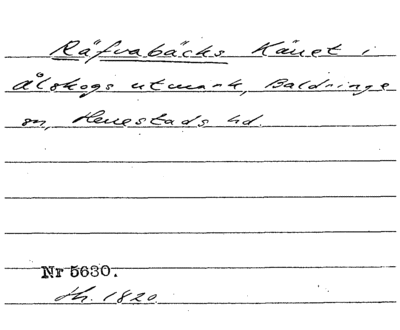 Räfvabäcks Känet i
Ålskogs utmark, Baldringe
sn, Herrestads hd.
Nr 5630.
th. 1820